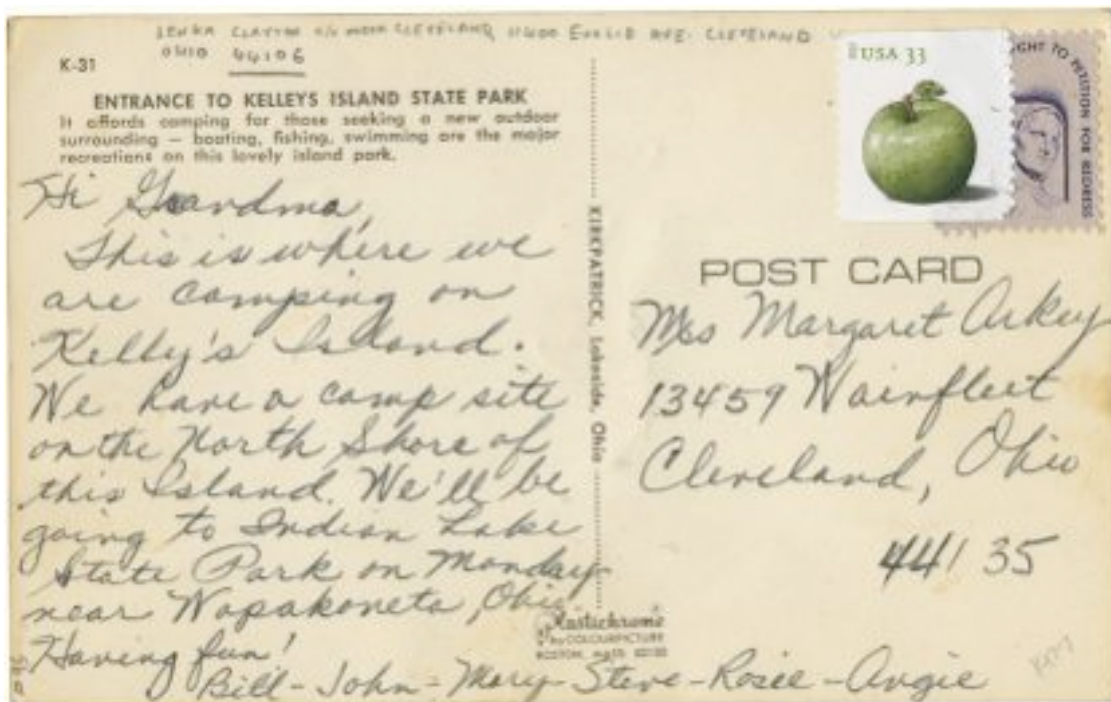 LENKA CLAYTON c/o MOCA CLEVELAND, 11400 EUCLID AVE. CLEVELAND
OHIO 44106
K-31
ENTRANCE TO KELLEYS ISLAND STATE PARK
It affords camping for those seeking a new outdoor
surrounding — boating, fishing, swimming are the major
recreations on this lovely island park.
Hi Grandma,
This is where we
are camping on
Kelly's Island.
We have a camp site
on the North Shore of
this Island. We'll be
going to Indian Lake
State Park on Monday
near Wapakoneta, Ohio.
Having fun!
Bill - John - Mary - Steve - Rosie - Angie
KIRKPATRICK, Lakeside, Ohio
USA 33
GHT TO PETITION FOR REDRESS
POST CARD
Mrs Margaret Arkey
13459 Wainfleet
Cleveland, Ohio
44135
Plastichrome
by COLOURPICTURE
BOSTON, MASS. 02130